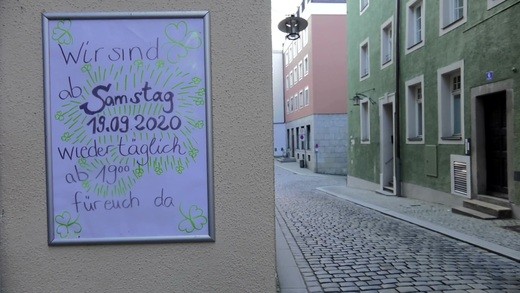 Wir sind
ab
Samstag
19.09.2020
wieder täglich
ab 19⁰⁰
für euch da